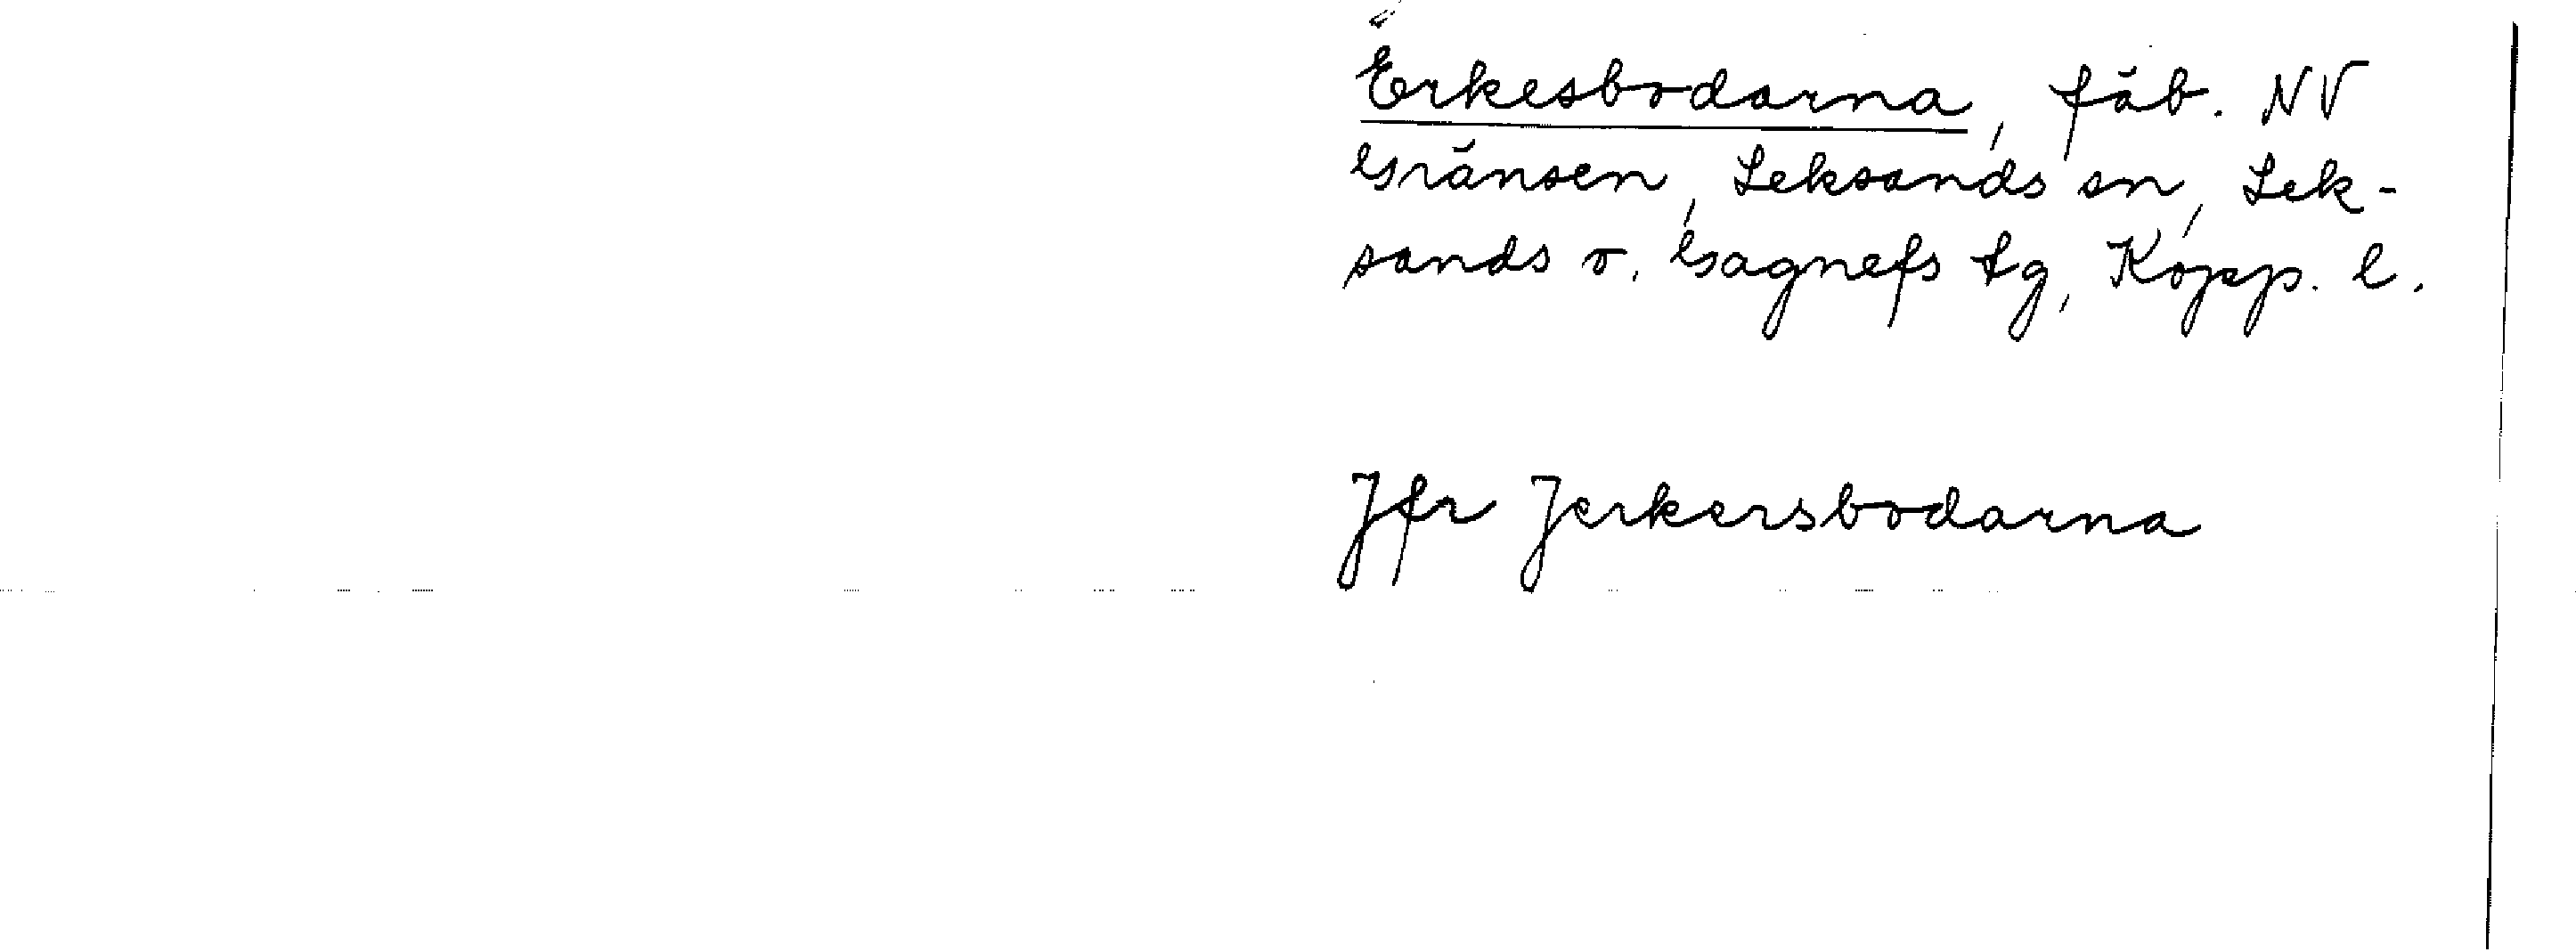 Erkesbodarna, fäb. NV
Gränsen, Leksands sn, Lek-
sands o. Gagnefs tg, Kopp. l.
Jfr Jerkersbodarna